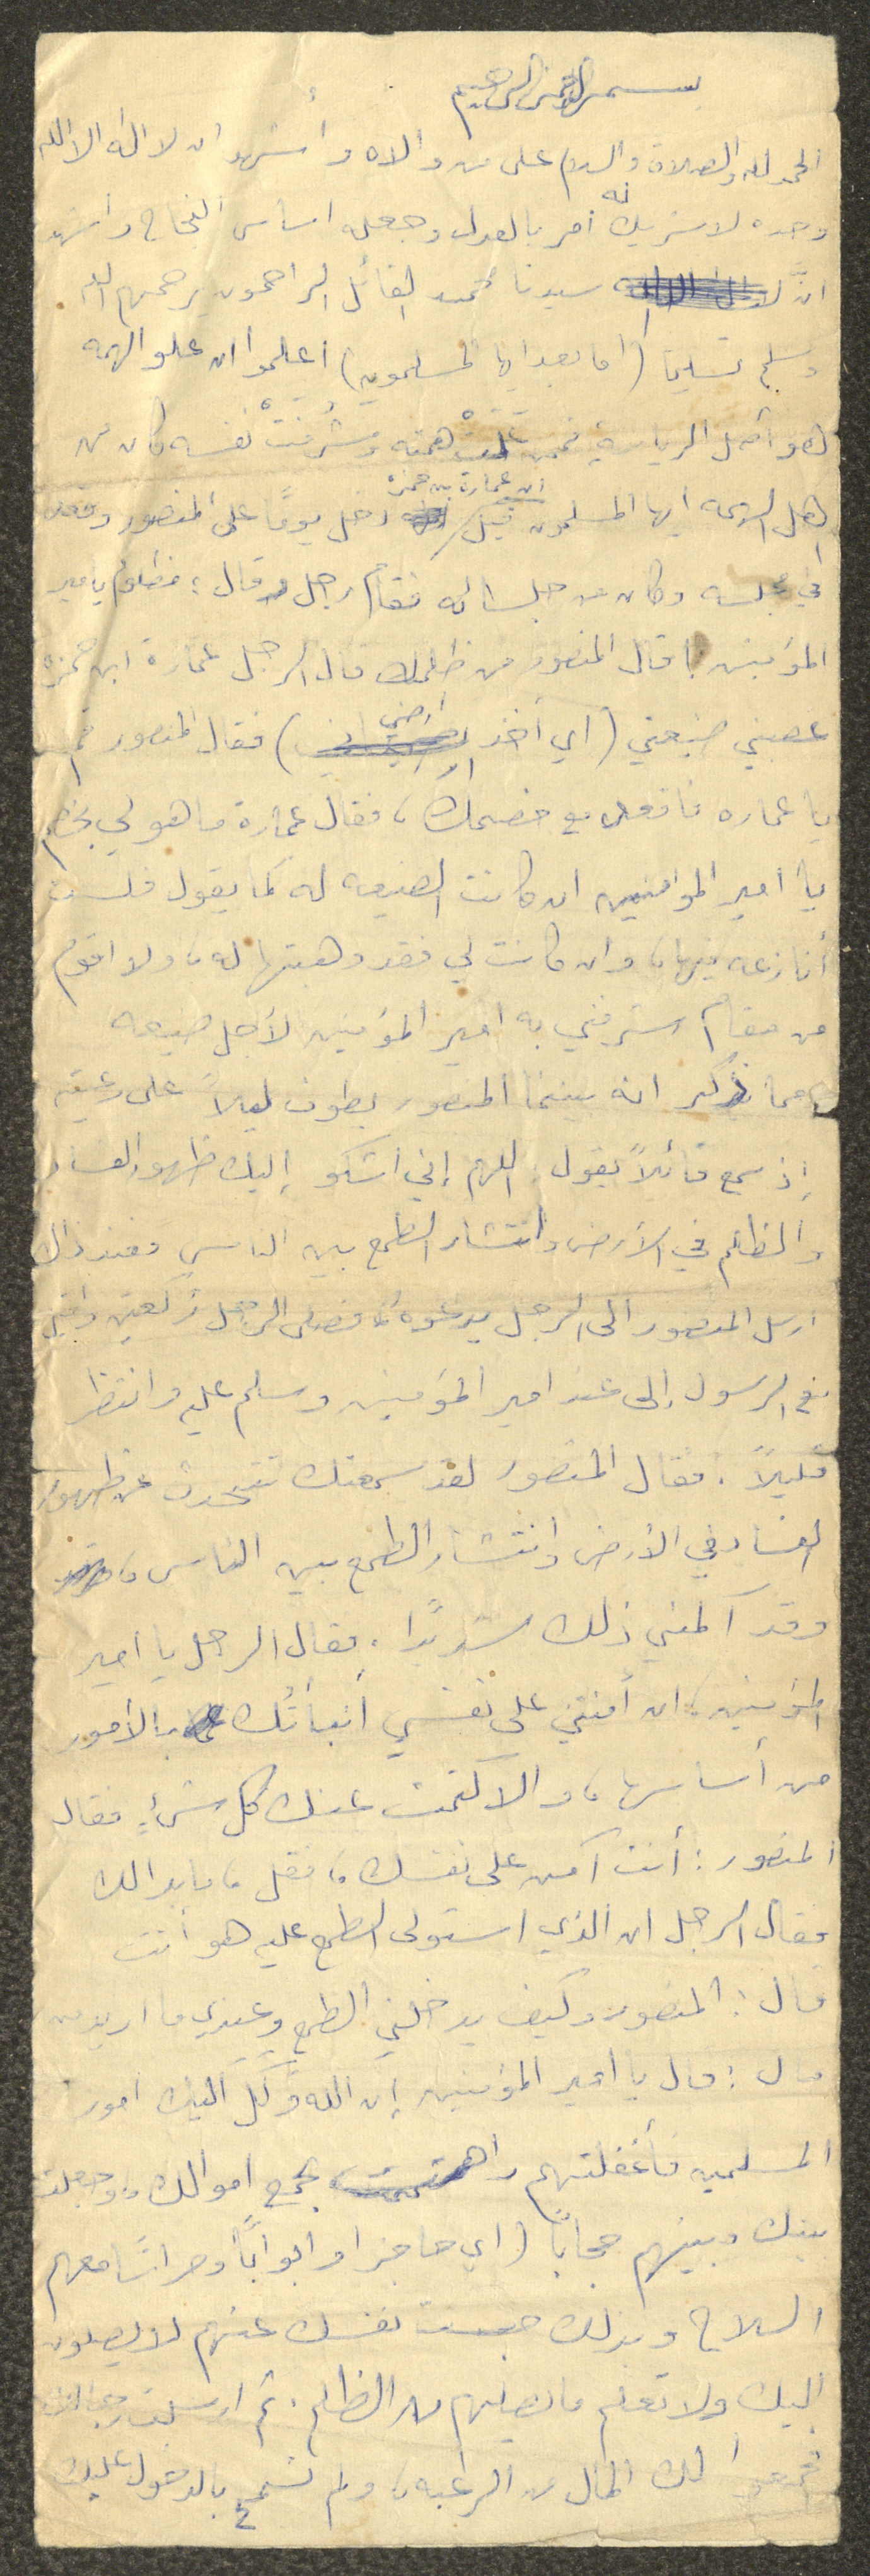 بسم الله الرحمن الرحيم
الحمد لله والصلاة والسلام على من والاه وأشهد ان لا اله الا الله
وحده لا شريك له أمر بالعدل وجعله اساس النجاح واشهد
انَّ سيدنا محمد القائل الراحمون يرحمهم الله
وسلم تسليما (اما بعد ايها المسلمون) اعلموا ان علو الهمه
هو أصل الرياسة فمن علت همته وشرفت نفسه كان من
اهل ايها المسلمون قيل ان عمارة بن حمزه دخل يومًا على المنصور وقعد
في مجلسه وكان من جلسائه فقام رجل وقال: مظلوم يا امير
المؤمنين. قال المنصور من ظلمك قال الرجل عمارة ابن حمزه
غصبني ضيعتي (اي أخذ ارضي) فقال المنصور قم
يا عماره فاقعد مع خصمك، فقال عمارة ما هو لي بخصم
يا أمير المؤمنين ان كانت الضيعه له كما يقول فلست
أنازعه فيها، وان كانت لي فقد وهبتها له، ولا اقوم
من مقام شرفني به امير المؤمنين لأجل ضيعه
ومما يذكر انه بينما المنصور يطوف ليلاً على رعيته
إذ سمع قائلاً يقول: اللهم إني اشكو إليك ظهور الفساد
والظلم في الأرض وانتشار الطمع بين الناس فعند ذاك
ارسل المنصور الى الرجل يدعوه فصلى الرجل ركعتين واقبل
مع الرسول إلى عند امير المؤمنين وسلم عليه وانتظر
قليلاً. فقال المنصور لقد سمعتك تتحدث عن ظهور
الفساد في الأرض وانتشار الطمع بين الناس،
وقد آلمني ذلك شديدًا، فقال الرجل يا امير
المؤمنين، ان أمنتني على نفسي أنبأتُك بالأمور
من أساسها، والا كتمت عنك كل شيءٍ فقال
المنصور: أنت آمن على نفسك، فقل ما بدالك
فقال الرجل ان الذي استولى الطمع عليه هو أنت
قال: المنصور وكيف يدخلني الطمع وعندي ما اريد
قال: يا أمير المؤمنين إن الله وكّل اليك امور
المسلمين فأغفلتهم واهتممت بجمع اموالك، وجعلت
بينك وبينهم حجابًا (اي حاجزا وابوابًا وحراسًا معهم
السلاح وبذلك حبست نفسك عنهم لا يصلون
إليك ولا تعلم ما يصلهم من الظلم. ثم ارسلت
لك المال من الرعيه، ولم تسمح بالدخول عليك